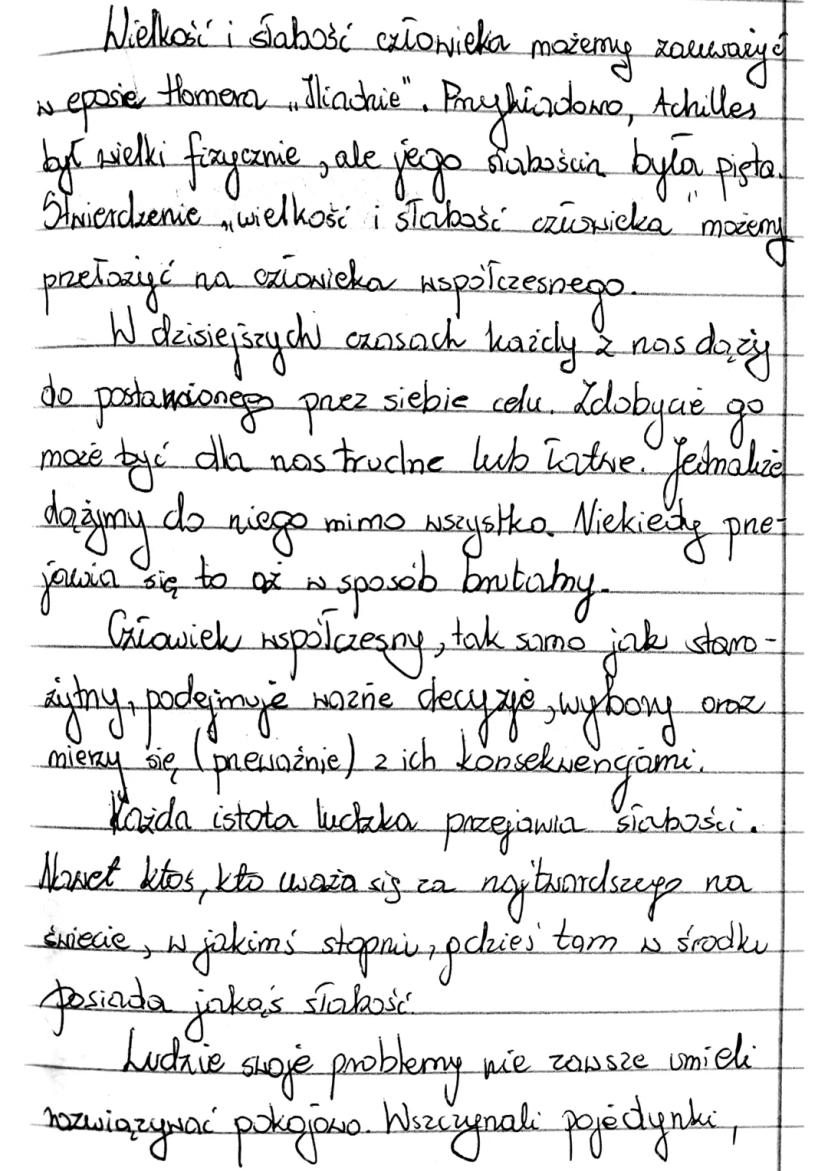 Wielkość i słabość człowieka możemy zauważyć
w eposie Homera „Iliadzie". Przykładowo, Achilles
był wielki fizycznie, ale jego słabością była pięta.
Stwierdzenie „wielkość i słabość człowieka" możemy
przełożyć na człowieka współczesnego.
W dzisiejszych czasach każdy z nas dąży
do postawionego przez siebie celu. Zdobycie go
może być dla nas trudne lub łatwe. Jednakże
dążymy do niego mimo wszystko. Niekiedy prze-
jawia się to aż w sposób brutalny.
Człowiek współczesny, tak samo jak staro-
żytny, podejmuje ważne decyzje, wybory oraz
mierzy się (przeważnie) z ich konsekwencjami.
Każda istota ludzka przejawia słabości.
Nawet ktoś, kto uważa się za najtwardszego na
świecie, w jakimś stopniu, gdzieś tam w środku
posiada jakąś słabość.
Ludzie swoje problemy nie zawsze umieli
rozwiązywać pokojowo. Wszczynali pojedynki,